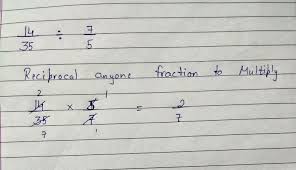 14/35 ÷ 7/5
Reciprocal anyone fraction to Multiply
2 1
14/35 × 5/7 = 2/7
7 1